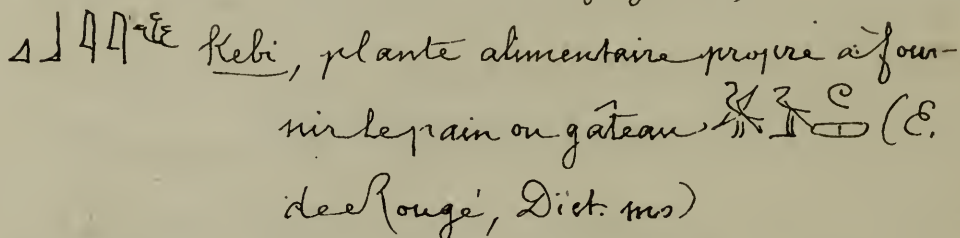 𓈎𓃀𓇋𓇋 Kebi, plante alimentaire propre à four-
nir le pain ou gâteau (E.
de Rougé, Dict. ms)